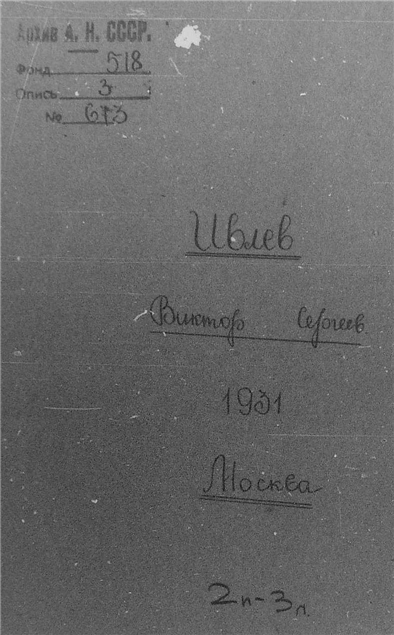 Архив А. Н. СССР.
Фонд 518
Опись 3
№ 673
Ивлев
Виктор Сергеев
1931
Москва
2п-3л.